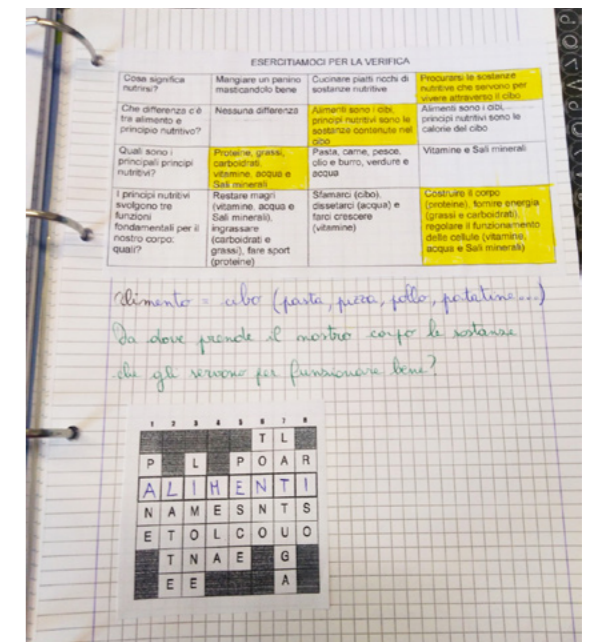 ESERCITIAMOCI PER LA VERIFICA
Cosa significa nutrirsi?
Mangiare un panino masticandolo bene
Cucinare piatti ricchi di sostanze nutritive
Procurarsi le sostanze nutritive che servono per vivere attraverso il cibo
Che differenza c'è tra alimento e principio nutritivo?
Nessuna differenza
Alimenti sono i cibi, principi nutritivi sono le sostanze contenute nel cibo
Alimenti sono i cibi, principi nutritivi sono le calorie del cibo
Quali sono i principali principi nutritivi?
Proteine, grassi, carboidrati, vitamine, acqua e Sali minerali
Pasta, carne, pesce, olio e burro, verdure e acqua
Vitamine e Sali minerali
I principi nutritivi svolgono tre funzioni fondamentali per il nostro corpo: quali?
Restare magri (vitamine, acqua e Sali minerali), ingrassare (carboidrati e grassi), fare sport (proteine)
Sfamarci (cibo), dissetarci (acqua) e farci crescere (vitamine)
Costruire il corpo (proteine), fornire energia (grassi e carboidrati), regolare il funzionamento delle cellule (vitamine, acqua e Sali minerali)
alimento = cibo (pasta, pizza, pollo, patatine...)
Da dove prende il nostro corpo le sostanze
che gli servono per funzionare bene?
1 2 3 4 5 6 7 8
T L
P L P O A R
A L I M E N T I
N A M E S N T S
E T O L C O U O
T N A E G
E E A